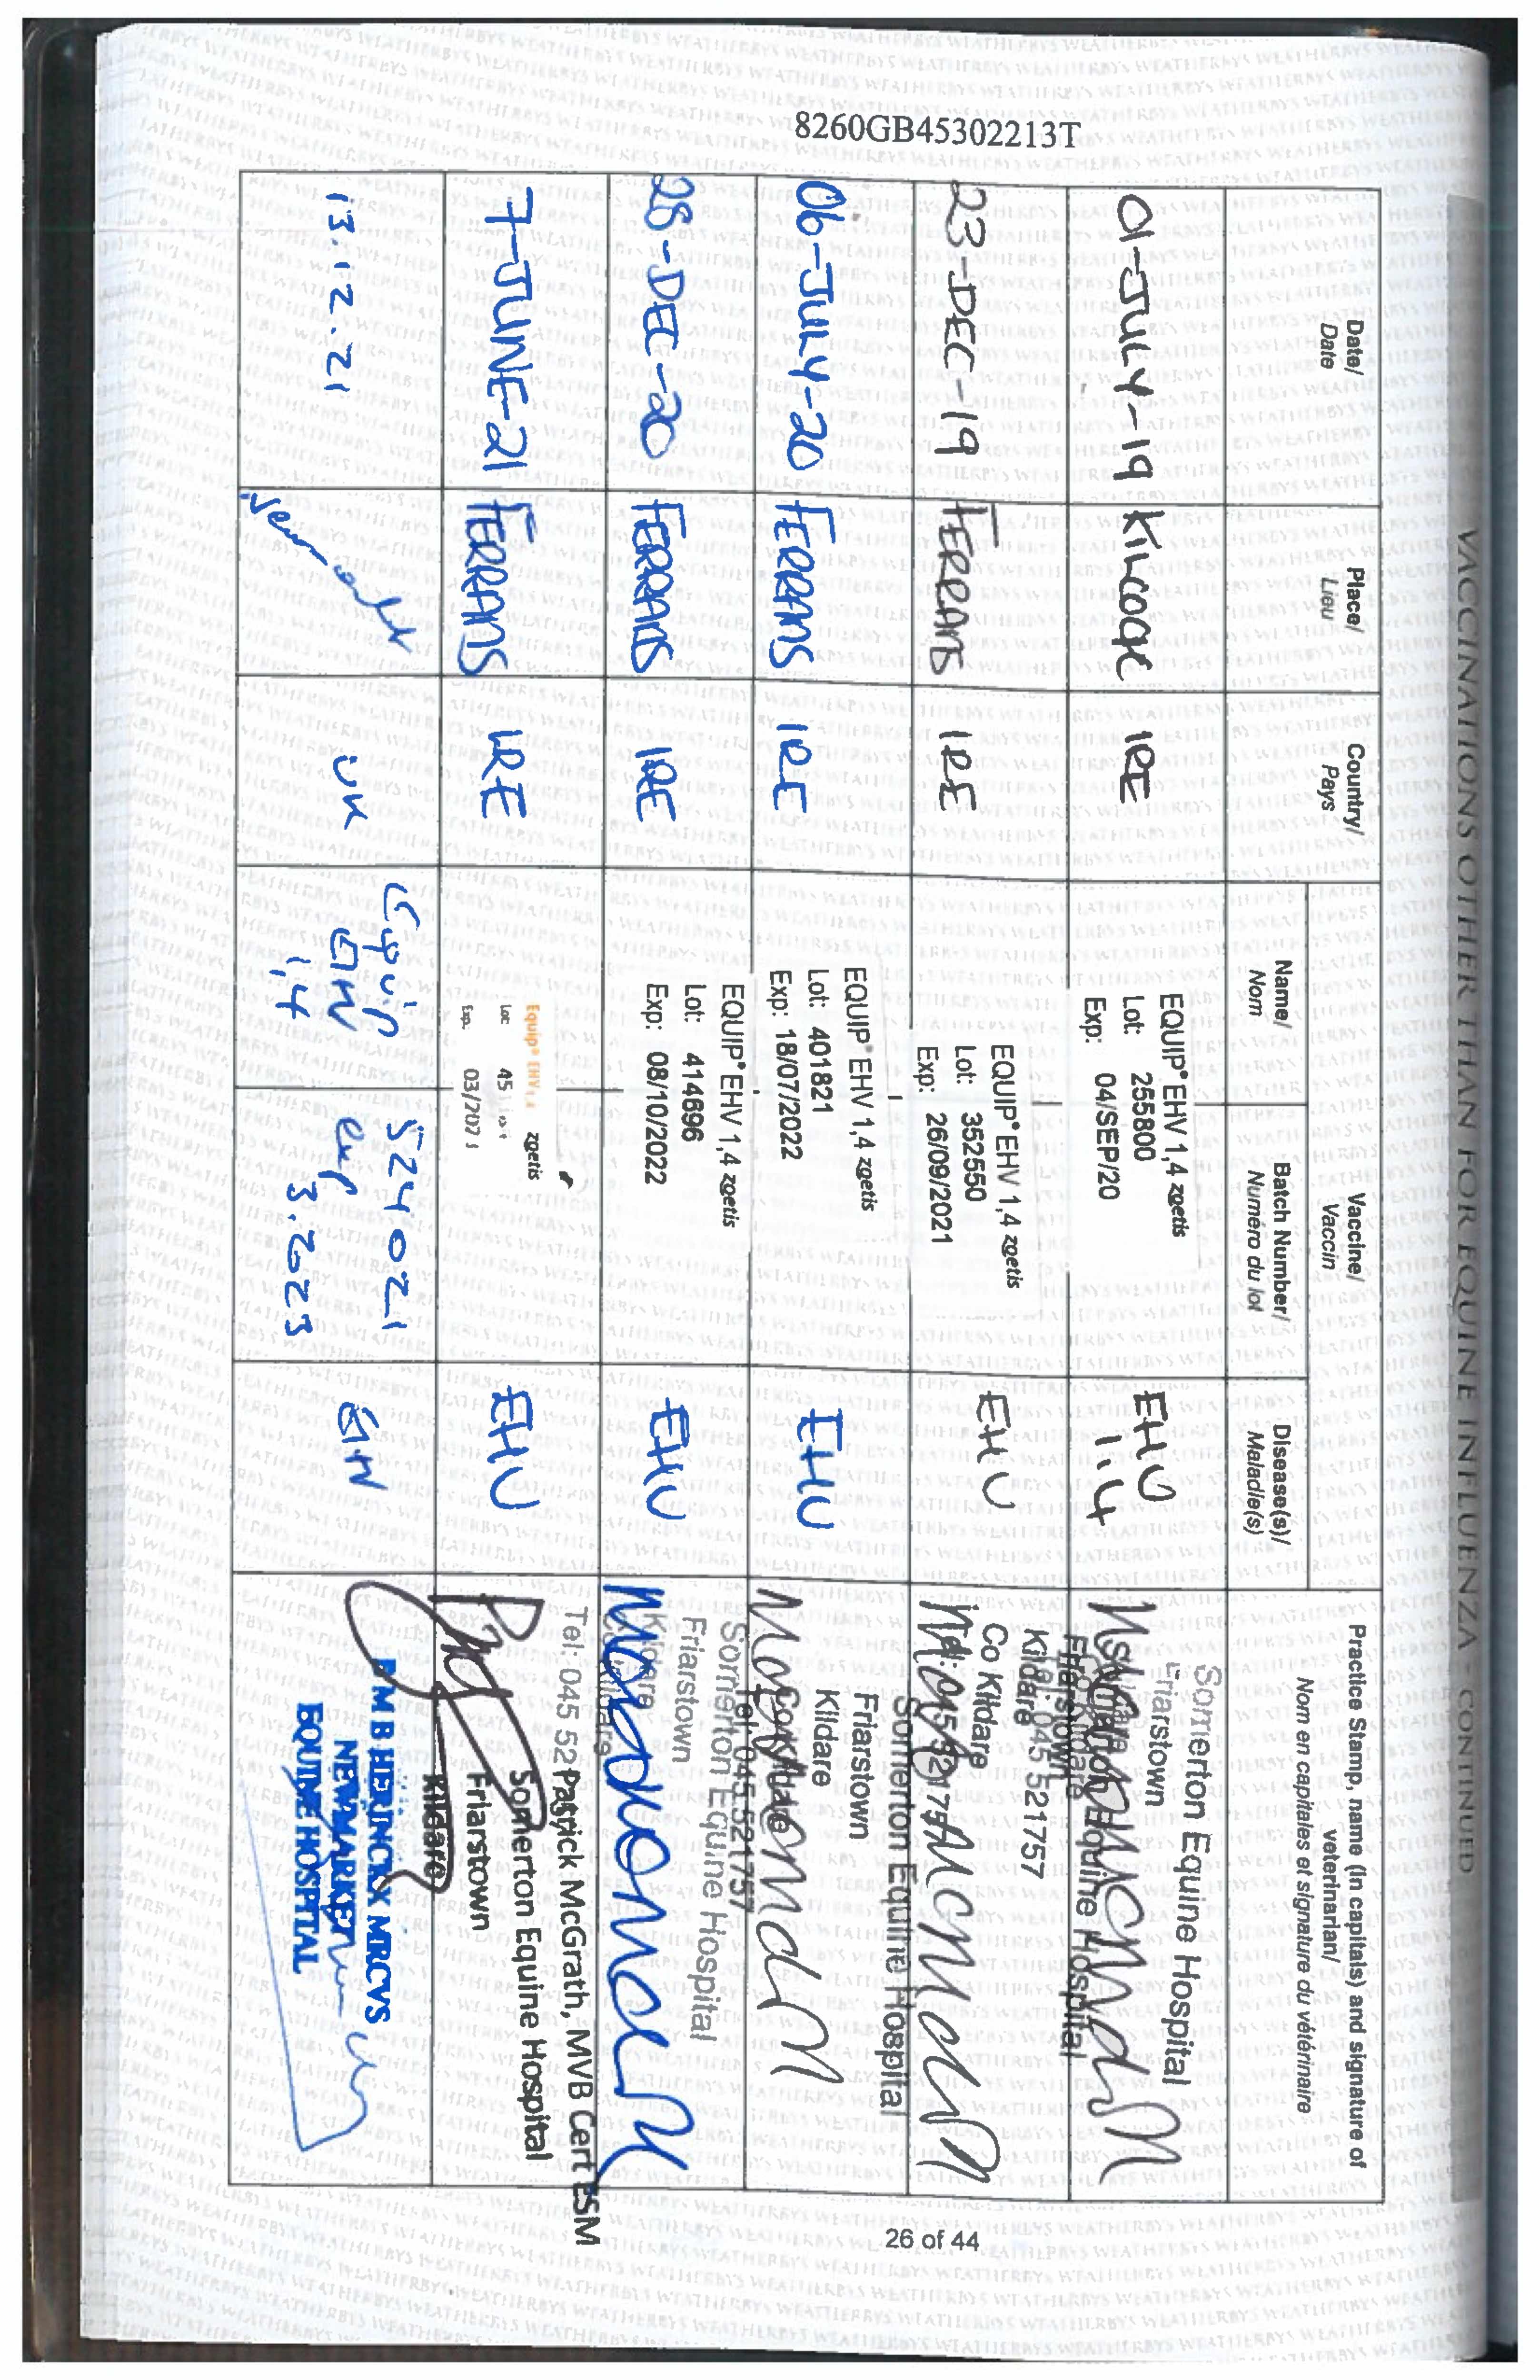 VACCINATIONS OTHER THAN FOR EQUINE INFLUENZA - CONTINUED
8260GB45302213T
Date/
Date
Place/
Lieu
Country/
Pays
Vaccine/
Vaccin
Name/
Nom
Batch Number/
Numéro du lot
Disease(s)/
Maladie(s)
Practice Stamp, name (in capitals) and signature of
veterinarian/
Nom en capitales et signature du vétérinaire
01-JULY-19
IRE
EQUIP® EHV 1,4 zoetis
Lot: 255800
Exp: 04/SEP/20
EHV
1.4
Somerton Equine Hospital
Friarstown
23-DEC-19
FERRANS
IRE
EQUIP® EHV 1,4 zoetis
Lot: 352550
Exp: 26/09/2021
EHV
Equine Hospital
Friarstown
Kildare
Co Kildare
06-JULY-20
FERRANS
IRE
EQUIP® EHV 1,4 zoetis
Lot: 401821
Exp: 18/07/2022
EHV
Somerton Equine Hospital
Friarstown
Kildare
Tel: 045 521757
28-DEC-20
FERRANS
IRE
EQUIP® EHV 1,4 zoetis
Lot: 414696
Exp: 08/10/2022
EHV
Somerton Equine Hospital
Friarstown
Kildare
7-JUNE-21
FERRANS
IRE
Equip® EHV 1,4 zoetis
Lot:
Exp.
EHV
Tel: 045 52
Patrick McGrath, MVB Cert ESM
Somerton Equine Hospital
Friarstown
Kildare
13.12.21
UK
Equip
EHV
1,4
524021
exp
3.2023
EHV
MRCVS
NEWMARKET
EQUINE HOSPITAL
26 of 44